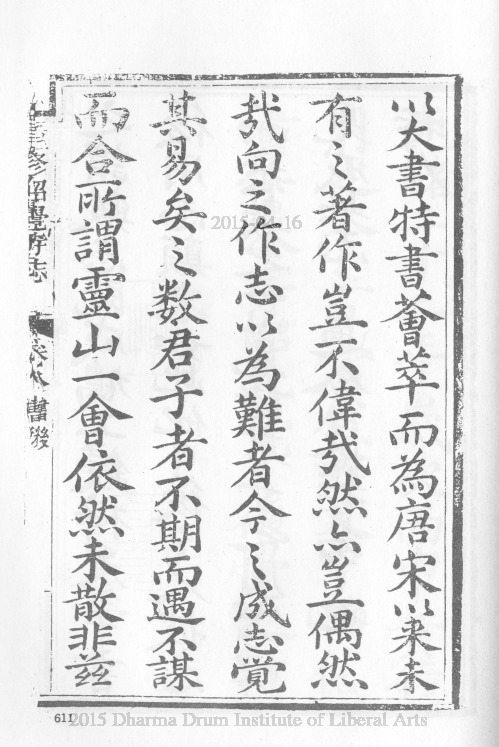 以大書特書薈萃而為唐宋以来未
有之著作豈不偉㢤然亦豈偶然
㢤向之作志以為難者今之成志覚
其易矣之数君子者不期而遇不謀
而合所謂靈山一會依然未散非茲
重修昭覺寺志
2015-04-16
611
2015 Dharma Drum Institute of Liberal Arts